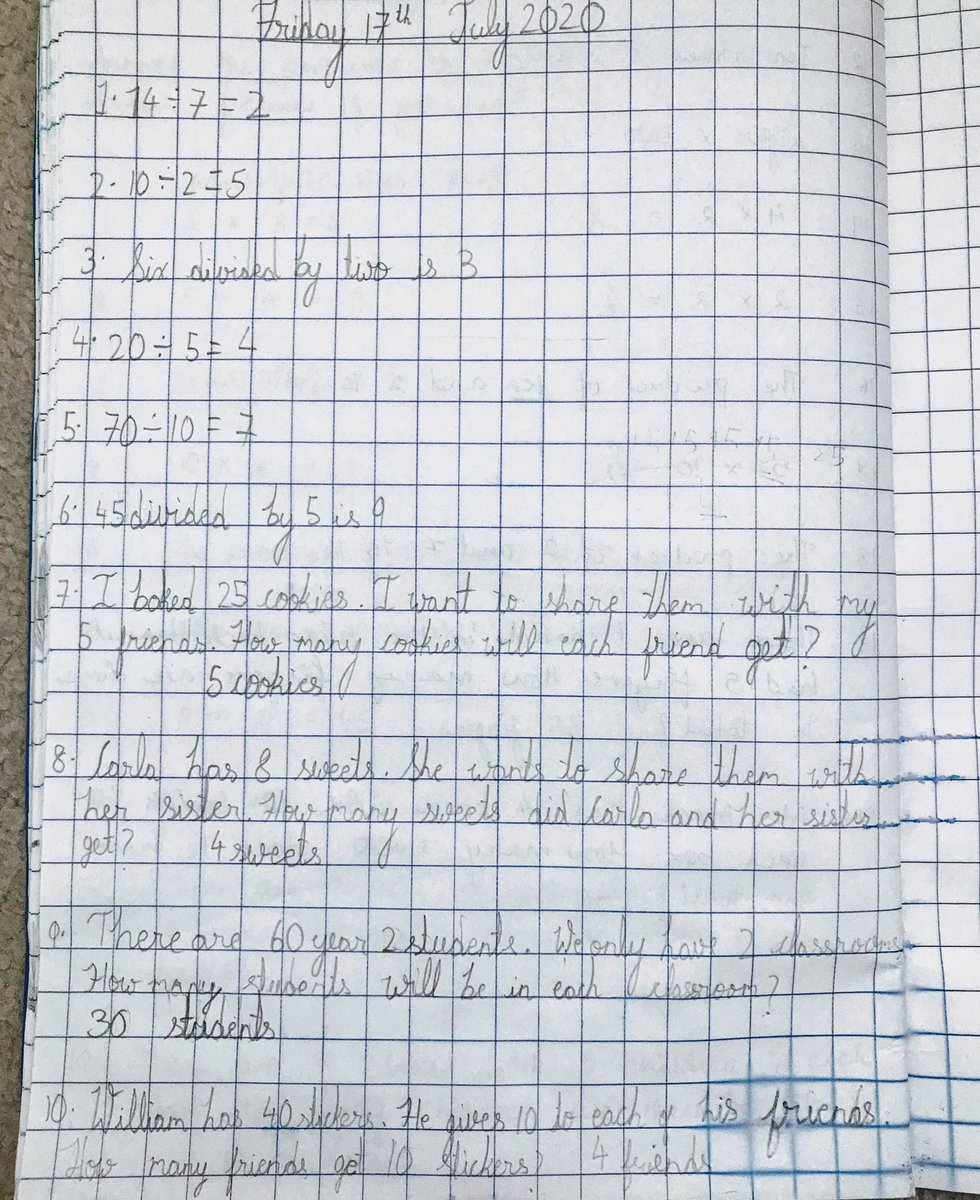 Friday 17th July 2020
1. 14 ÷ 7 = 2
2. 10 ÷ 2 = 5
3. Six divided by two is 3
4. 20 ÷ 5 = 4
5. 70 ÷ 10 = 7
6. 45 divided by 5 is 9
7. I baked 25 cookies. I want to share them with my
5 friends. How many cookies will each friend get?
5 cookies
8. Carla has 8 sweets. She wants to share them with
her sister. How many sweets did Carla and her sister
get? 4 sweets
9. There are 60 year 2 students. We only have 2 classrooms
How many students will be in each classroom?
30 students
10. William has 40 stickers. He gives 10 to each of his friends.
How many friends get 10 stickers? 4 friends